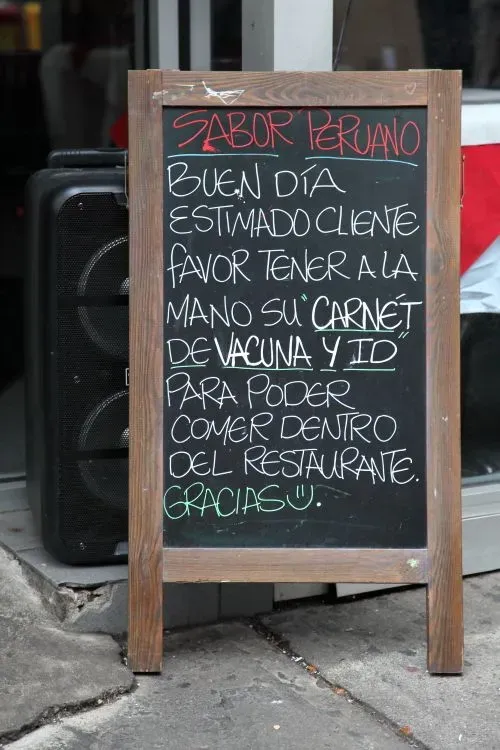 SABOR PERUANO
BUEN DÍA
ESTIMADO CLIENTE
FAVOR TENER A LA
MANO SU "CARNÉT
DE VACUNA Y ID"
PARA PODER
COMER DENTRO
DEL RESTAURANTE.
GRACIAS☺.